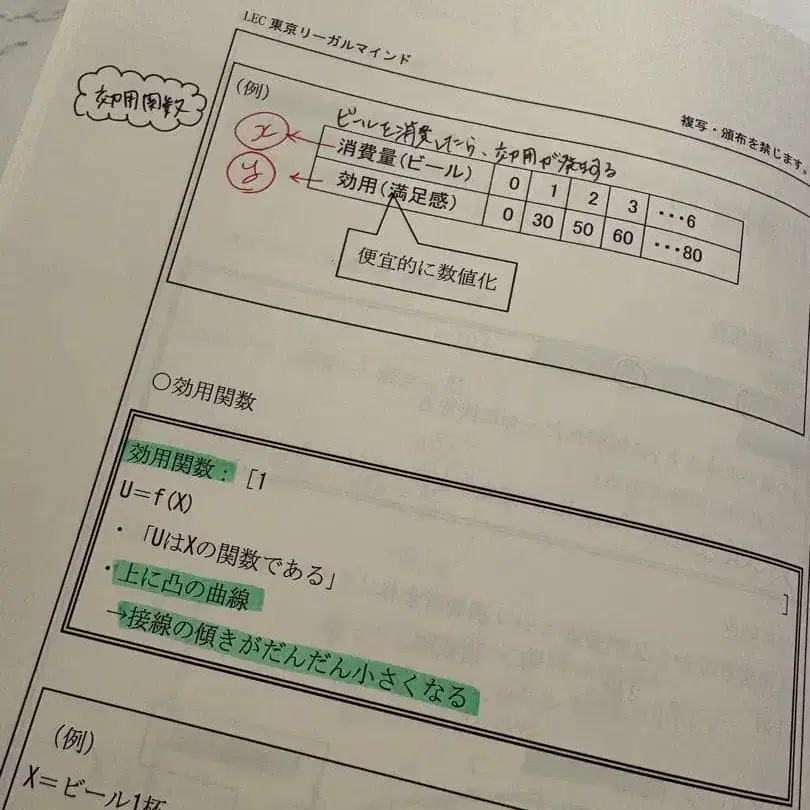 LEC 東京リーガルマインド
複写・頒布を禁じます。
効用関数
(例)
ビールを消費したら、効用が発生する
x
消費量(ビール) 0 1 2 3 ・・・6
y
効用(満足感) 0 30 50 60 ・・・80
便宜的に数値化
○効用関数
効用関数: [1
]
U=f(X)
・「UはXの関数である」
・上に凸の曲線
→接線の傾きがだんだん小さくなる
(例)
X=ビール1杯